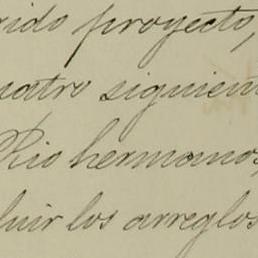 rido proyecto,
uatro siguien
Rio hermanos,
luir los arreglos